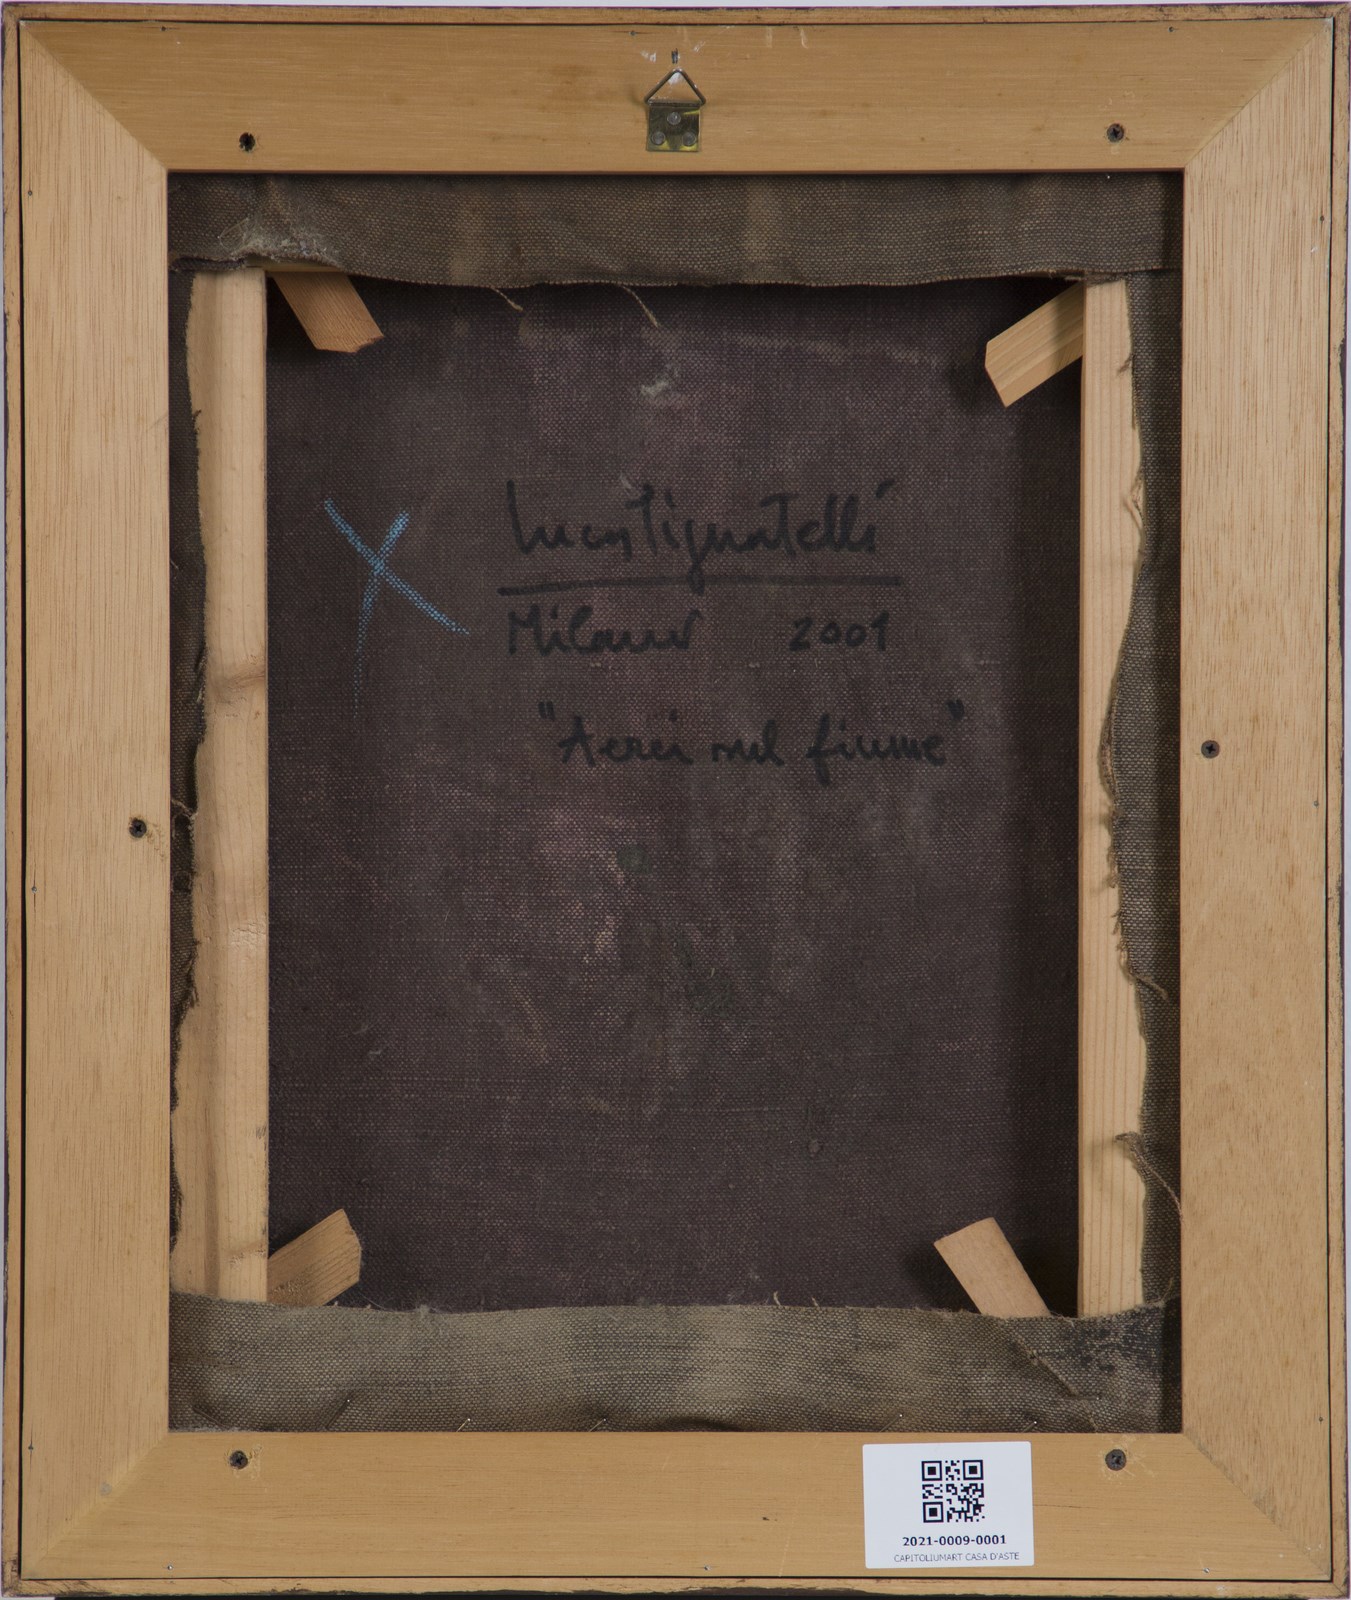 Luca Pignatelli
Milano 2001
"Aerei sul fiume"
2021-0009-0001
CAPITOLIUMART CASA D'ASTE